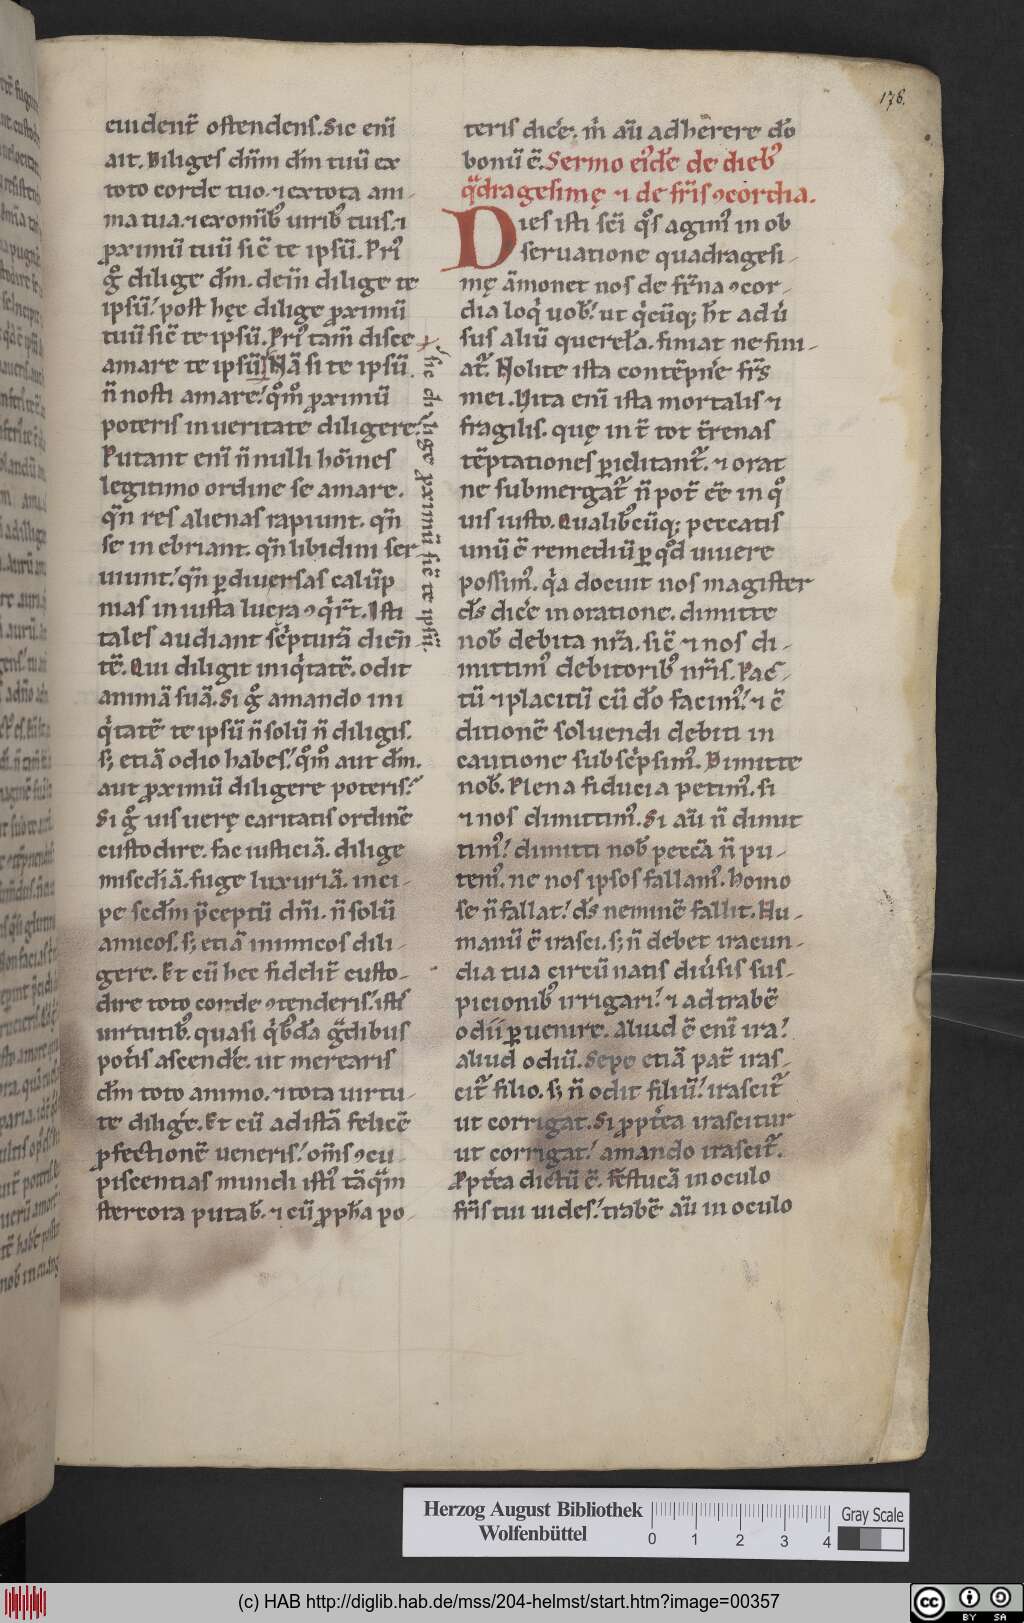 178.
euident̄ ostendens. Sic enī
ait. Diliges dn̄m dm̄ tuū ex
toto corde tuo. ⁊ ex tota ani-
ma tua. ⁊ ex omib᷒ uirib᷒ tuis. ⁊
ꝓximū tuū sic̄ te ipsū. Pri᷒
gͦ dilige dm̄. dein̄ dilige te
ipsū. post hęc dilige ꝓximū
tuū sic̄ te ipsū. Pri᷒ tam̄ disce
amare te ipsū Nā si te ipsū
n̄ nosti amare. qͦmͦ ꝓximū
poteris in ueritate diligere.
sic dilige ꝓximū sic̄ te ipsū.
Putant enī n̄nulli hoīnes
legitimo ordine se amare.
qn̄ res alienas rapiunt. qn̄
se inebriant. qn̄ libidini ser
uiunt. qn̄ ꝑ diuersas calūp
nias iniusta lucra ꝯqͥrt̄. Isti
tales audiant scͥpturā dicn̄-
tē. Qui diligit iniqͥtatē. odit
animā suā. Si gͦ amando ini
qͥtatē te ipsū n̄ solū n̄ diligis.
sꝫ etiā odio habes. qͦmͦ aut dm̄.
aut ꝓximū diligere poteris.
Si gͦ uis uerę caritatis ordinē
custodire. fac iusticiā. dilige
misc̄diā. fuge luxuriā. inci-
pe scd̄m p̄ceptū dn̄i. n̄ solū
amicos. sꝫ etiā inimicos dili-
gere. Et cū hec fidelit̄ custo-
dire toto corde ꝯtenderis. istis
uirtutib᷒. quasi qͥb᷒dā gͣdibus
potis ascendē. ut mercaris
dm̄ toto animo. ⁊ tota uirtu-
te diligē. Et cū ad istā felicē
ꝓfectionē ueneris. om̄s ꝯcu
piscentias mundi isti᷒ tāqͣm
stercora putab̄. ⁊ cū ꝓpħa po-
teris dicē. m̄ aū adherere do̅
bonū ē. Sermo ei᷒de̅ de dieb᷒
qͣdragesimę ⁊ de fr̄is ꝯcordia.
Dies isti sc̄i qͦs agim᷒ in ob
seruatione quadragesi-
mę āmonet nos de fr̄na ꝯcor-
dia loqͥ uob̄. ut qͥcūqꝫ h̄t aduͥ
sus aliū querelā. finiat ne fini-
at᷑. Nolite ista contēpnē fr̄s
mei. Vita enī ista mortalis ⁊
fragilis. quę int̄ tot t̄renas
tēptationes ꝑiclitant᷑. ⁊ orat
ne submergat᷑ n̄ pot̄ eē in qͦ
uis iusto. Qualib᷒cūqꝫ peccatis
unū ē remediū ꝑ qͦd uiuere
possim᷒. qͥa docuit nos magister
d̄s dicē in oratione. dimitte
nob̄ debita nr̄a. sic̄ ⁊ nos di-
mittim᷒ debitorib᷒ nr̄is. Pac-
tū ⁊ placitū cū do̅ facim᷒. ⁊ ꝯ̄
ditionē soluendi debiti in
cautione subscͥpsim᷒. Dimitte
nob̄. Plena fiducia petim᷒. si
⁊ nos dimittim᷒. Si aū n̄ dimit
tim᷒. dimitti nob̄ peccā n̄ pu-
tem᷒. ne nos ipsos fallam᷒. homo
se n̄ fallat. d̄s neminē fallit. Hu-
manū ē irasci. sꝫ n̄ debet iracun-
dia tua circū natis diuͥsis sus-
picionib᷒ irrigari. ⁊ ad trabē
odii ꝑuenire. Aliud ē enī ira.
aliud odiū. Sepe etiā pat̄ iras-
cit᷑ filio. sꝫ n̄ odit filiū. irascit᷑
ut corrigat. Si ꝓpt̄ea irascitur
ut corrigat. amando irascit᷑.
Ꝓpt̄ea dictū ē. fēstucā in oculo
fr̄is tui uides. trabē aū in oculo
Herzog August Bibliothek
Wolfenbüttel
0 1 2 3 4
Gray Scale
(c) HAB http://diglib.hab.de/mss/204-helmst/start.htm?image=00357
cc BY SA